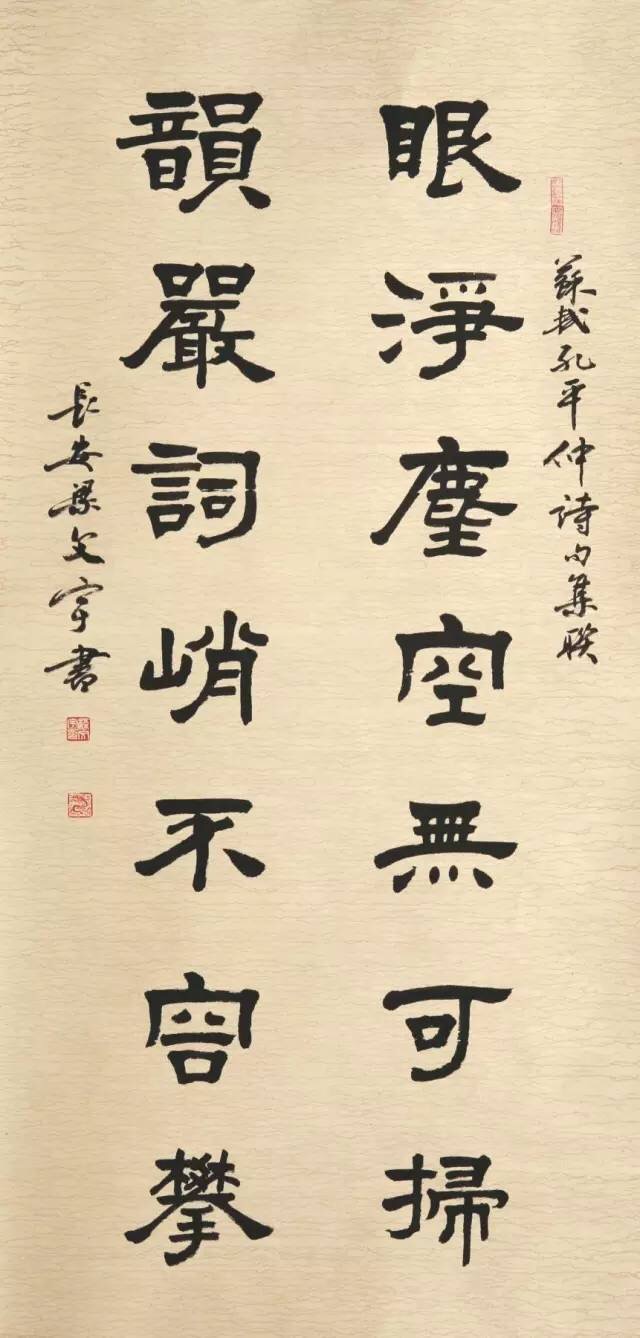 蘇軾孔平仲詩句集聯
眼淨塵空無可掃
韻嚴詞峭不容攀
長安梁文宇書